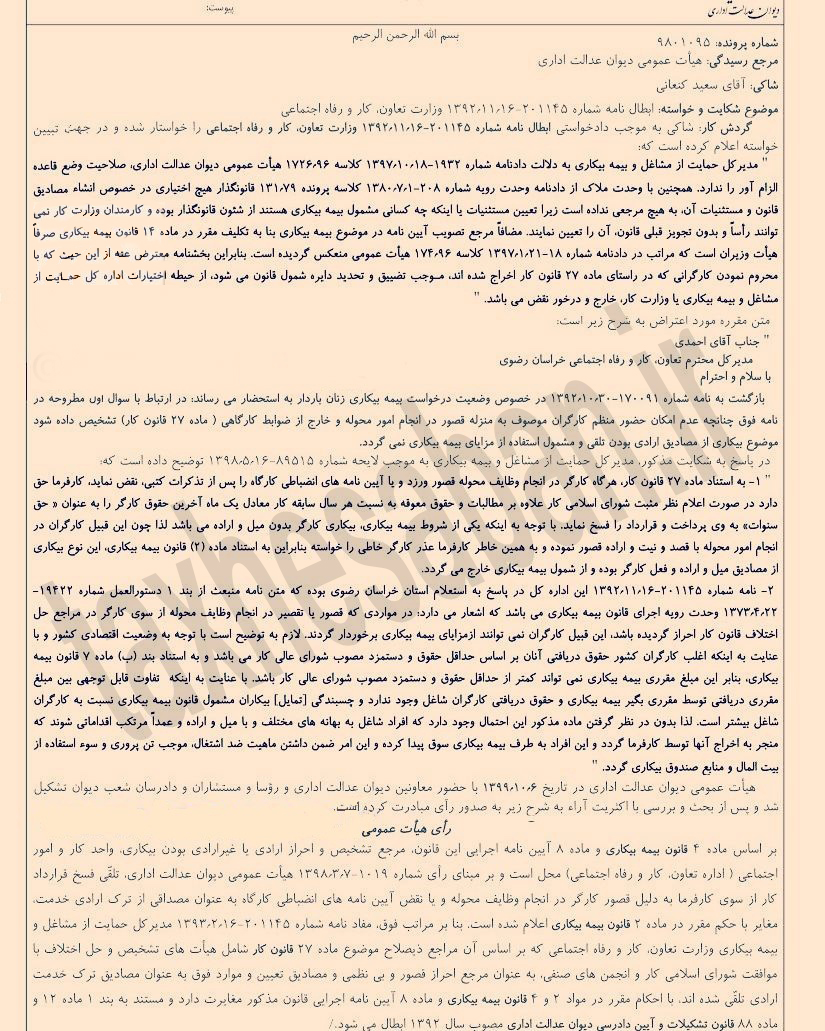 دیوان عدالت اداری
پیوست:
بسم الله الرحمن الرحیم
شماره پرونده: ۹۸۰۱۰۹۵
مرجع رسیدگی: هیأت عمومی دیوان عدالت اداری
شاکی: آقای سعید کنعانی
موضوع شکایت و خواسته: ابطال نامه شماره ۲۰۱۱۴۵-۱۳۹۲/۱۱/۱۶ وزارت تعاون، کار و رفاه اجتماعی
گردش کار: شاکی به موجب دادخواستی ابطال نامه شماره ۲۰۱۱۴۵-۱۳۹۲/۱۱/۱۶ وزارت تعاون، کار و رفاه اجتماعی را خواستار شده و در جهت تبیین
خواسته اعلام کرده است که:
" مدیرکل حمایت از مشاغل و بیمه بیکاری به دلالت دادنامه شماره ۱۹۳۲-۱۳۹۷/۱۰/۱۸ کلاسه ۱۷۲۶/۹۶ هیأت عمومی دیوان عدالت اداری، صلاحیت وضع قاعده
الزام آور را ندارد. همچنین با وحدت ملاک از دادنامه وحدت رویه شماره ۲۰۸-۱۳۸۰/۷/۱ کلاسه پرونده ۱۳۱/۷۹ قانونگذار هیچ اختیاری در خصوص انشاء مصادیق
قانون و مستثنیات آن، به هیچ مرجعی نداده است زیرا تعیین مستثنیات یا اینکه چه کسانی مشمول بیمه بیکاری هستند از شئون قانونگذار بوده و کارمندان وزارت کار نمی
توانند رأساً و بدون تجویز قبلی قانون، آن را تعیین نمایند. مضافاً مرجع تصویب آیین نامه در موضوع بیمه بیکاری بنا به تکلیف مقرر در ماده ۱۴ قانون بیمه بیکاری صرفاً
هیأت وزیران است که مراتب در دادنامه شماره ۱۸-۱۳۹۷/۱/۲۱ کلاسه ۱۷۴/۹۶ هیأت عمومی منعکس گردیده است. بنابراین بخشنامه معترض عنه از این حیث که با
محروم نمودن کارگرانی که در راستای ماده ۲۷ قانون کار اخراج شده اند، موجب تضییق و تحدید دایره شمول قانون می شود، از حیطه اختیارات اداره کل حمایت از
مشاغل و بیمه بیکاری یا وزارت کار، خارج و درخور نقض می باشد. "
متن مقرره مورد اعتراض به شرح زیر است:
" جناب آقای احمدی
مدیرکل محترم تعاون، کار و رفاه اجتماعی خراسان رضوی
با سلام و احترام
بازگشت به نامه شماره ۱۷۰۰۹۱-۱۳۹۲/۱۰/۳۰ در خصوص وضعیت درخواست بیمه بیکاری زنان باردار به استحضار می رساند: در ارتباط با سوال اول مطروحه در
نامه فوق چنانچه عدم امکان حضور منظم کارگران موصوف به منزله قصور در انجام امور محوله و خارج از ضوابط کارگاهی ( ماده ۲۷ قانون کار) تشخیص داده شود
موضوع بیکاری از مصادیق ارادی بودن تلقی و مشمول استفاده از مزایای بیمه بیکاری نمی گردد.
در پاسخ به شکایت مذکور، مدیرکل حمایت از مشاغل و بیمه بیکاری به موجب لایحه شماره ۸۹۵۱۵-۱۳۹۸/۵/۱۶ توضیح داده است که:
" ۱- به استناد ماده ۲۷ قانون کار، هرگاه کارگر در انجام وظایف محوله قصور ورزد و یا آیین نامه های انضباطی کارگاه را پس از تذکرات کتبی، نقض نماید، کارفرما حق
دارد در صورت اعلام نظر مثبت شورای اسلامی کار علاوه بر مطالبات و حقوق معوقه به نسبت هر سال سابقه کار معادل یک ماه آخرین حقوق کارگر را به عنوان « حق
سنوات» به وی پرداخت و قرارداد را فسخ نماید. با توجه به اینکه یکی از شروط بیمه بیکاری، بیکاری کارگر بدون میل و اراده می باشد لذا چون این قبیل کارگران در
انجام امور محوله با قصد و نیت و اراده قصور نموده و به همین خاطر کارفرما عذر کارگر خاطی را خواسته بنابراین به استناد ماده (۲) قانون بیمه بیکاری، این نوع بیکاری
از مصادیق میل و اراده و فعل کارگر بوده و از شمول بیمه بیکاری خارج می گردد.
۲- نامه شماره ۲۰۱۱۴۵-۱۳۹۲/۱۱/۱۶ این اداره کل در پاسخ به استعلام استان خراسان رضوی بوده که متن نامه منبعث از بند ۱ دستورالعمل شماره ۱۹۴۲۲-
۱۳۷۳/۴/۲۲ وحدت رویه اجرای قانون بیمه بیکاری می باشد که اشعار می دارد: در مواردی که قصور یا تقصیر در انجام وظایف محوله از سوی کارگر در مراجع حل
اختلاف قانون کار احراز گردیده باشد، این قبیل کارگران نمی توانند ازمزایای بیمه بیکاری برخوردار گردند. لازم به توضیح است با توجه به وضعیت اقتصادی کشور و با
عنایت به اینکه اغلب کارگران کشور حقوق دریافتی آنان بر اساس حداقل حقوق و دستمزد مصوب شورای عالی کار می باشد و به استناد بند (ب) ماده ۷ قانون بیمه
بیکاری، بنابر این مبلغ مقرری بیمه بیکاری نمی تواند کمتر از حداقل حقوق و دستمزد مصوب شورای عالی کار باشد. با عنایت به اینکه تفاوت قابل توجهی بین مبلغ
مقرری دریافتی توسط مقرری بگیر بیمه بیکاری و حقوق دریافتی کارگران شاغل وجود ندارد و چسبندگی [تمایل] بیکاران مشمول قانون بیمه بیکاری نسبت به کارگران
شاغل بیشتر است. لذا بدون در نظر گرفتن ماده مذکور این احتمال وجود دارد که افراد شاغل به بهانه های مختلف و با میل و اراده و عمداً مرتکب اقداماتی شوند که
منجر به اخراج آنها توسط کارفرما گردد و این افراد به طرف بیمه بیکاری سوق پیدا کرده و این امر ضمن داشتن ماهیت ضد اشتغال، موجب تن پروری و سوء استفاده از
بیت المال و منابع صندوق بیکاری گردد. "
هیأت عمومی دیوان عدالت اداری در تاریخ ۱۳۹۹/۱۰/۶ با حضور معاونین دیوان عدالت اداری و رؤسا و مستشاران و دادرسان شعب دیوان تشکیل
شد و پس از بحث و بررسی با اکثریت آراء به شرح زیر به صدور رأی مبادرت کرده است.
رأی هیأت عمومی
بر اساس ماده ۴ قانون بیمه بیکاری و ماده ۸ آیین نامه اجرایی این قانون، مرجع تشخیص و احراز ارادی یا غیرارادی بودن بیکاری، واحد کار و امور
اجتماعی ( اداره تعاون، کار و رفاه اجتماعی) محل است و بر مبنای رأی شماره ۱۰۱۹-۱۳۹۸/۳/۷ هیأت عمومی دیوان عدالت اداری، تلقّی فسخ قرارداد
کار از سوی کارفرما به دلیل قصور کارگر در انجام وظایف محوله و یا نقض آیین نامه های انضباطی کارگاه به عنوان مصداقی از ترک ارادی خدمت،
مغایر با حکم مقرر در ماده ۲ قانون بیمه بیکاری اعلام شده است. بنا بر مراتب فوق، مفاد نامه شماره ۲۰۱۱۴۵-۱۳۹۳/۲/۱۶ مدیرکل حمایت از مشاغل و
بیمه بیکاری وزارت تعاون، کار و رفاه اجتماعی که بر اساس آن مراجع ذیصلاح موضوع ماده ۲۷ قانون کار شامل هیأت های تشخیص و حل اختلاف با
موافقت شورای اسلامی کار و انجمن های صنفی، به عنوان مرجع احراز قصور و بی نظمی و مصادیق تعیین و موارد فوق به عنوان مصادیق ترک خدمت
ارادی تلقّی شده اند، با احکام مقرر در مواد ۲ و ۴ قانون بیمه بیکاری و ماده ۸ آیین نامه اجرایی قانون مذکور مغایرت دارد و مستند به بند ۱ ماده ۱۲ و
ماده ۸۸ قانون تشکیلات و آیین دادرسی دیوان عدالت اداری مصوب سال ۱۳۹۲ ابطال می شود./